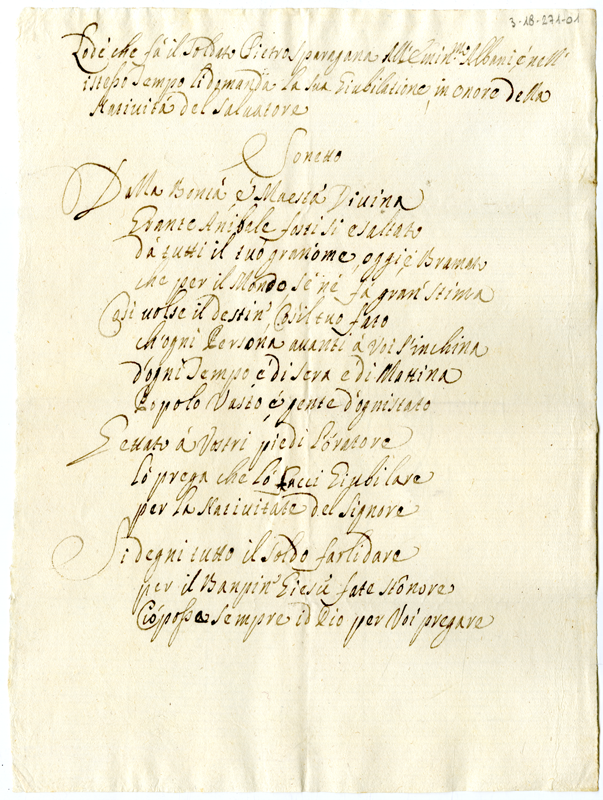 3-18-271-01
Lode che fà il Soldato Pietro Sparagana all'Emin.mo Albani é nell'
istesso Tempo li domanda la sua Giubilatione, in onore della
Natività del Salvatore
Sonetto
Dalla Bontà é Maestà Divina
Grante Anibale fosti si esaltato
dà tutti il tuo gran'ome, oggi é Bramato
che per il Mondo sé né fà gran'stima
Così volse il destin', Così'l tuo fato
ch'ogni Persona avanti à Voi s'inchina
d'ogni Tempo é di Sera é di Mattina
Popolo Vasto é gente d'ognistato
Gettato à Vostri piedi l'Oratore
lò prega che lò facci Giubilare
per la Natività te del Signore
Si degni tutto il Soldo farlidare
per il Banpin' Giesù fate st'onore
Ciò possa sempre id Dio per Voi pregare